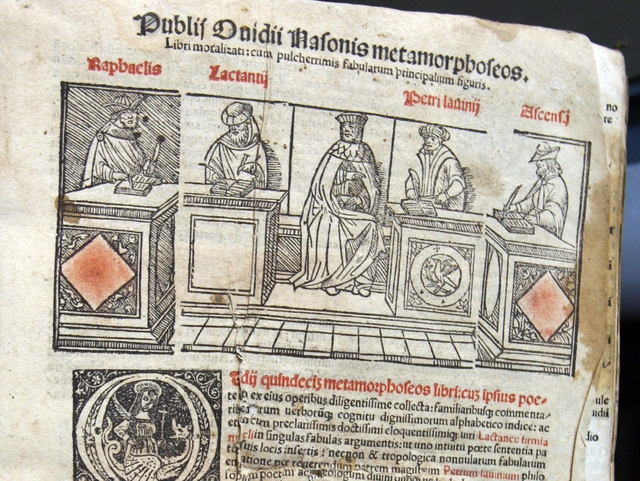 Publij Ouidii Nasonis metamorphoseos.
Libri moralizati: cum pulcherrimis fabularum principalium figuris.
Raphaelis
Lactantij
Petri lauinij
Ascensij
quindecim metamorphoseos libri: cuz ipsius poe-
ex eius operibus diligentissime collecta: familiaribusq commenta-
cum verborūq cognitu dignissimorum alphabetico indice: ac
cum preclarissimis doctissimi eloquentissimiq uiri Lactanci firmia
in singulas fabulas argumentis: ut uno intuitu poete sententia pa
suis locis insertis: necnon & tropologica nonnullarum fabularum
per reuerendum patrem magistrum Petrum lauinum philo
no
re
ule
udii
dio